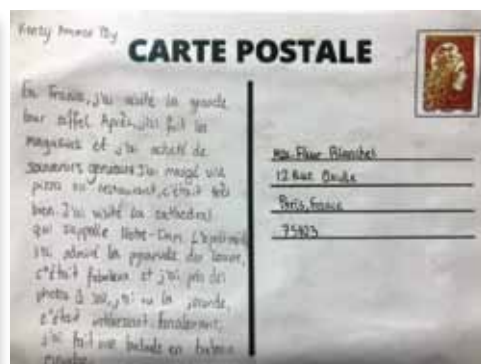 CARTE POSTALE
En France, j'ai visité la grande
tour eiffel. Après, j'ai fait les
magasins et j'ai acheté de
souvenirs j'ai mangé une
pizza au restaurant, c'était très
bien. J'ai visité la cathedral
qui s'appelle Notre-Dam.
j'ai admiré la pyramide du Louvre,
c'était fabuleux et j'ai pris des
photos j'ai vu la
c'était intéressant finalement,
j'ai fait une balade en bateau
Fleur Blanchet
12 Rue
Paris, France